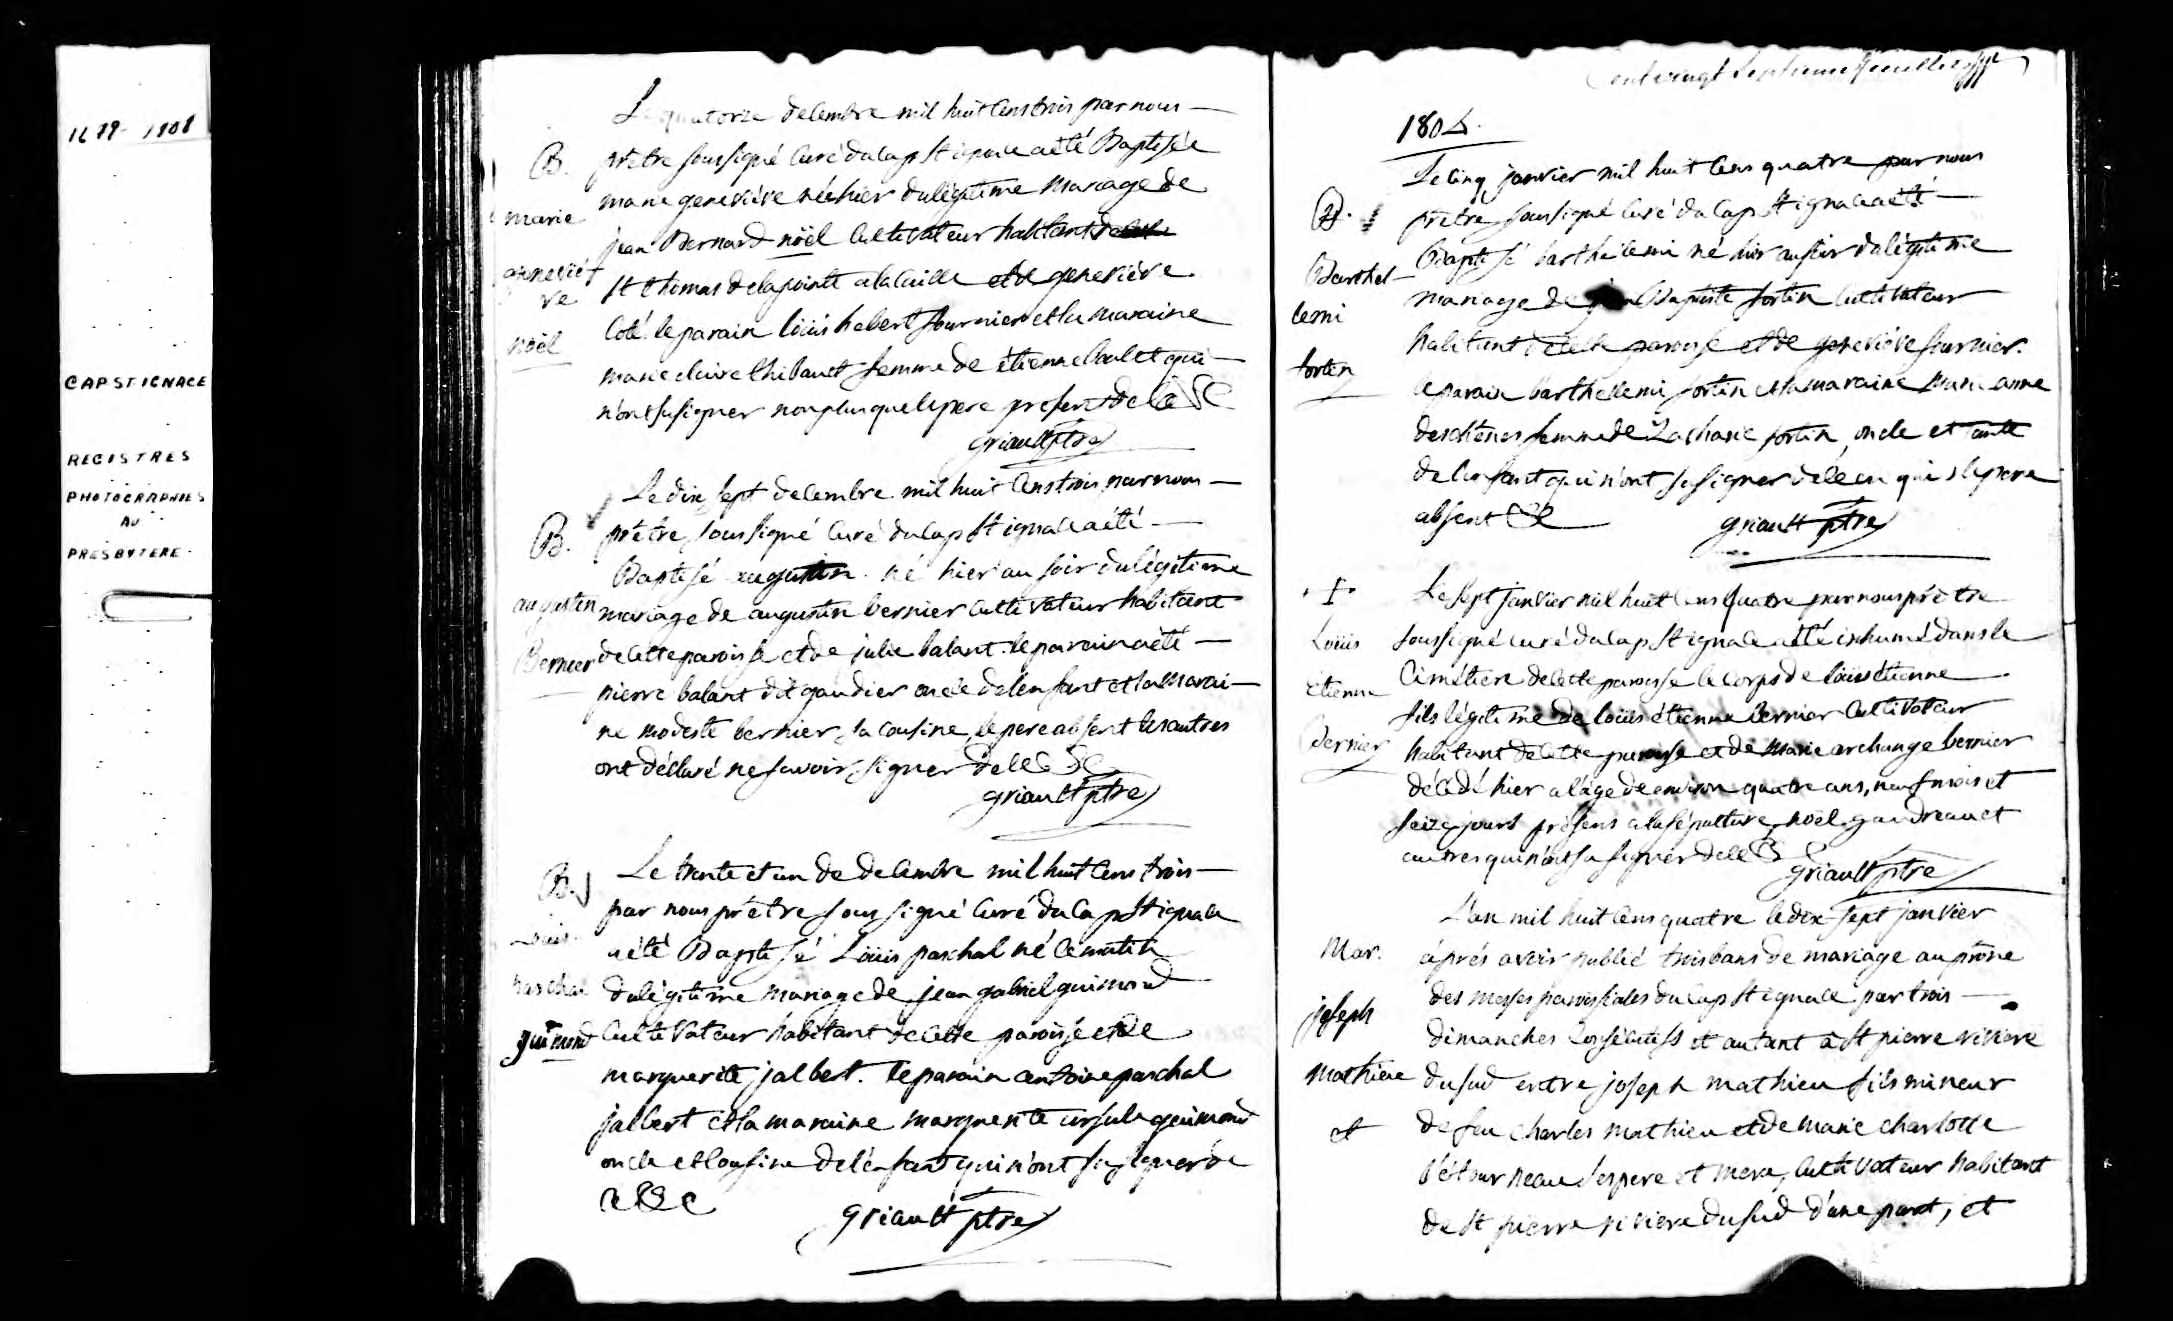 1679-1808
CAP ST IGNACE
REGISTRES
PHOTOGRAPHIES
AU
PRESBYTERE.
Le quatorze decembre mil huit cens trois par nous
B. prêtre soussigné curé du cap St ignace a été Baptisée
marie marie genevieve née hier du légitime mariage de
jean Bernard noël cultivateur habitant
genevieve St thomas de la pointe a la caille et de genevieve
Coté. le parain loüis hebert fournier et la maraine
noël marie claire thibault femme de étienne boulet qui
n'ont su signer non plus que le pere present de ce &c
griault ptre
Le dix sept decembre mil huit cens trois par nous
B. prêtre soussigné curé du cap St ignace a été
Baptisé augustin né hier au soir du légitime
augustin mariage de augustin bernier cultivateur habitant
Bernier de cette paroisse et de julie balant. le parain a été
pierre balant dit gaudier oncle de l'enfant et la marai-
ne modeste bernier, sa cousine, le pere absent les autres
ont déclaré ne savoir signer de ce &c
griault ptre
B. Le trente et un de decembre mil huit cens trois
par nous prêtre soussigné curé du cap St ignace
Louis a été Baptisé Loüis paschal né ce matin
paschal du légitime mariage de jean gabriel guimond
guimond cultivateur habitant de cette paroisse et de
marguerite jalbert. le parain antoine paschal
jalbert et la maraine marguerite ursule guimond
oncle et cousine de l'enfant qui n'ont su signer de
ce &c
griault ptre
Cent vingt septieme feuillet
1804.
Le cinq janvier mil huit cens quatre par nous
B. prêtre soussigné curé du cap St ignace a été
Barthel- Baptisé barthelemi né hier au soir du légitime
mariage de jean Baptiste fortin cultivateur
lemi habitant de cette paroisse et de genevieve fournier.
fortin le parain barthelemi fortin et la maraine marie anne
deschenes femme de Zacharie fortin, oncle et tante
de l'enfant qui n'ont su signer de ce en quis le pere
absent &c griault ptre
S. Le sept janvier mil huit cens quatre par nous prêtre
Loüis soussigné curé du cap St ignace a été inhumé dans le
Etienne Cimétiere de cette paroisse le corps de loüis étienne
fils légitime de loüis étienne bernier cultivateur
Bernier habitant de cette paroisse et de marie archange bernier
décédé hier a l'âge de environ quatre ans, neuf mois et
seize jours présens a la sépulture, noël gaudreau et
autres qui n'ont su signer de ce &c
griault ptre
L'an mil huit cens quatre le dix-sept janvier
Mar. après avoir publié trois bans de mariage au prône
des messes paroissiales du cap St ignace par trois
joseph dimanches consécutifs et autant à St pierre riviere
Mathieu du sud entre joseph mathieu fils mineur
et de feu charles mathieu et de marie charlotte
létourneau ses pere et mere, cultivateur habitant
de St pierre riviere du sud d'une part, et